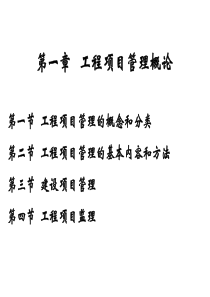 第一章 工程项目管理概论
第一节 工程项目管理的概念和分类
第二节 工程项目管理的基本内容和方法
第三节 建设项目管理
第四节 工程项目监理